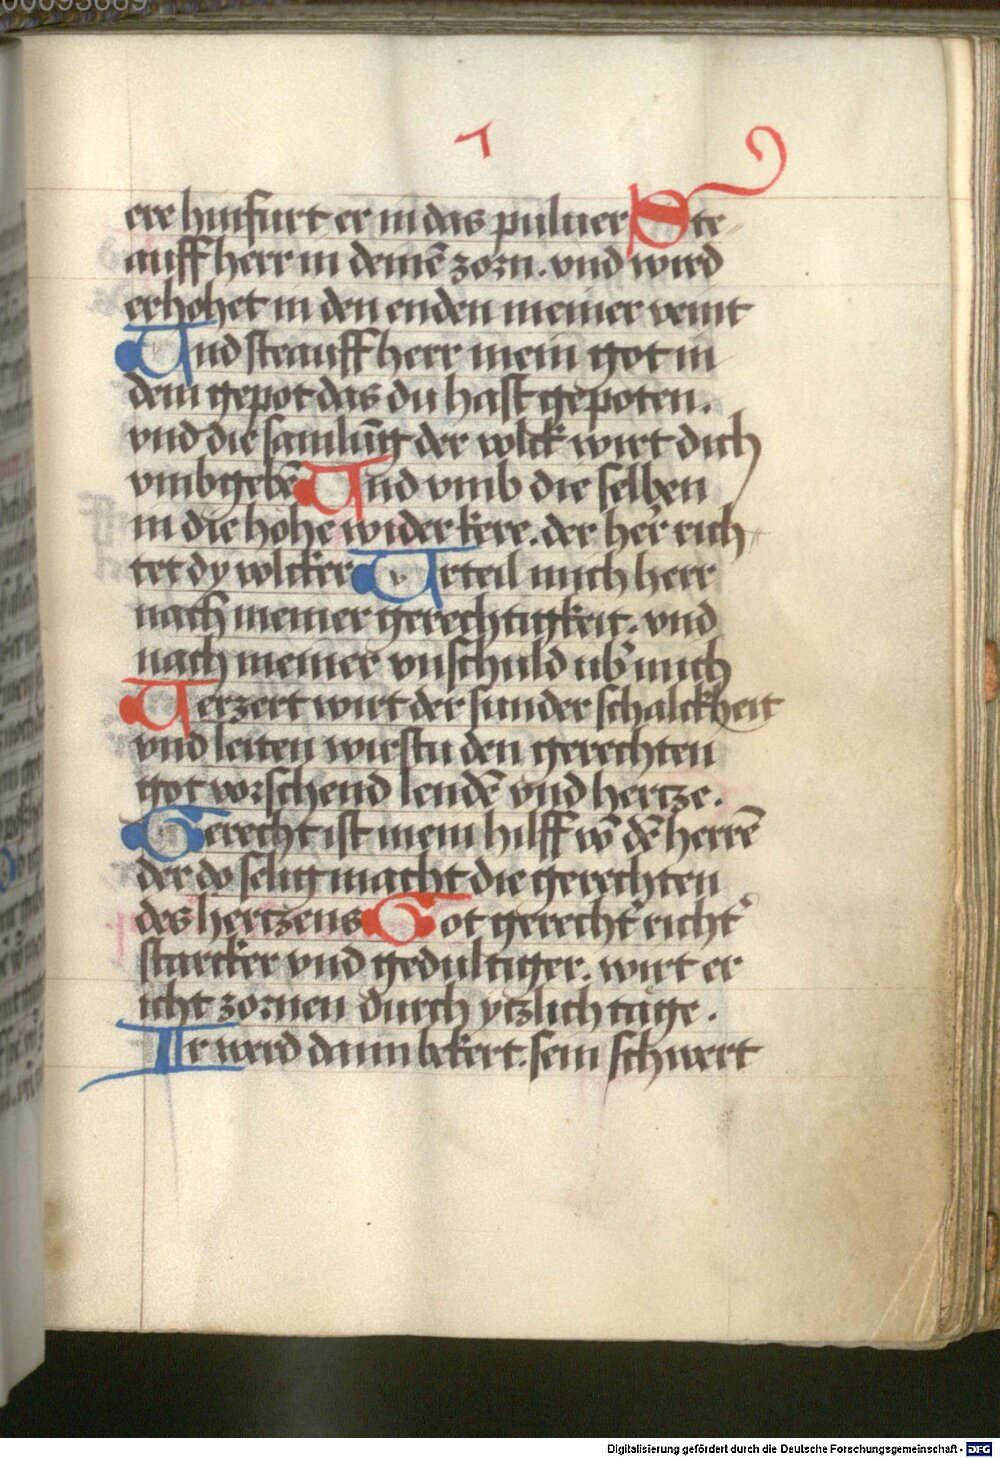 00095689
7
ere hinfurt er in das puluer Ste
auff herr in deinē zorn. vnd wird
erhohet in den enden meiner veint
Vnd ste auff herr mein got in
dem gepot das du hast gepoten.
vnd die samlūg der volck wirt dich
vmbgebē Vnd vmb die selben
in die hohe wider kere. der her rich
tet dy volcker Vrteil mich herr
nach meiner gerechtigkeit. vnd
nach meiner vnschuld ub' mich
Verzert wirt der sunder schalckheit
vnd leiten wirstu den gerechten
got vorschend lendē vnd hertze.
Gerecht ist mein hilff vō dē herrē
der do selig macht die gerechten
des hertzens Got gerecht' richt'
starcker vnd gedultiger. wirt er
icht zornen durch ytzlich tage.
Ir werd dann bekert. sein schwert
Digitalisierung gefördert durch die Deutsche Forschungsgemeinschaft - DFG